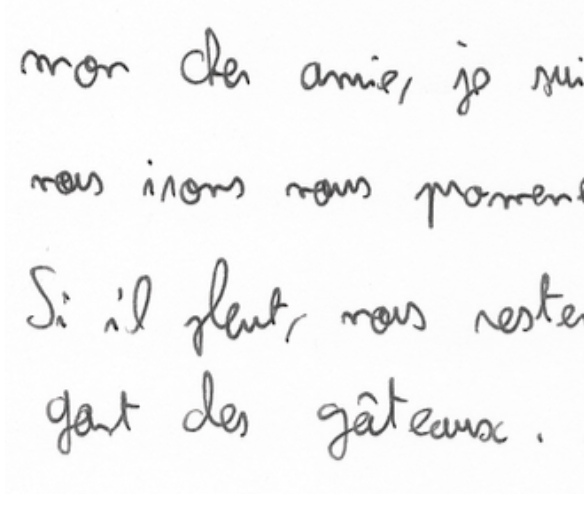 mon cher amie, je sui
nous irons nous promene
Si il pleut, nous reste
gant des gâteaux.